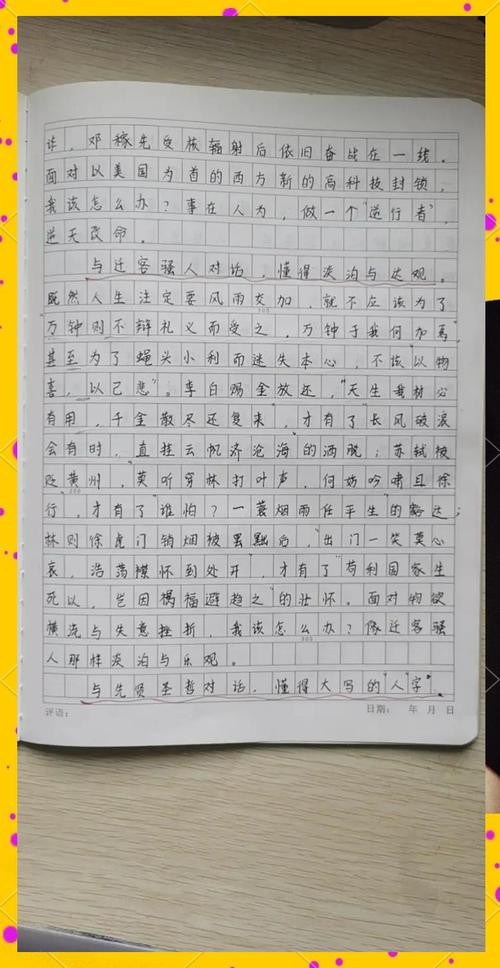 诈，邓稼先受核辐射后依旧奋战在一线。
面对以美国为首的西方新的高科技封锁，
我该怎么办？事在人为，做一个“逆行者”，
逆天改命。
与迁客骚人对话，懂得淡泊与达观。
既然人生注定要风雨交加，就不应该为了
100
“万钟则不辩礼义而受之，万钟于我何加焉”
甚至为了蝇头小利而迷失本心，不该“以物
喜，以己悲”。李白赐金放还，“天生我材必
有用，千金散尽还复来”，才有了“长风破浪
会有时，直挂云帆济沧海”的洒脱；苏轼被
贬黄州，“莫听穿林打叶声，何妨吟啸且徐
200
行”，才有了“谁怕？一蓑烟雨任平生”的豁达；
林则徐虎门销烟被罢黜后，“出门一笑莫心
哀，浩荡襟怀到处开”，才有了“苟利国家生
死以，岂因祸福避趋之”的壮怀。面对物欲
横流与失意挫折，我该怎么办？像迁客骚
300
人那样淡泊与乐观。
与先贤圣哲对话，懂得大写的“人”字。
评语：
日期： 年 月 日